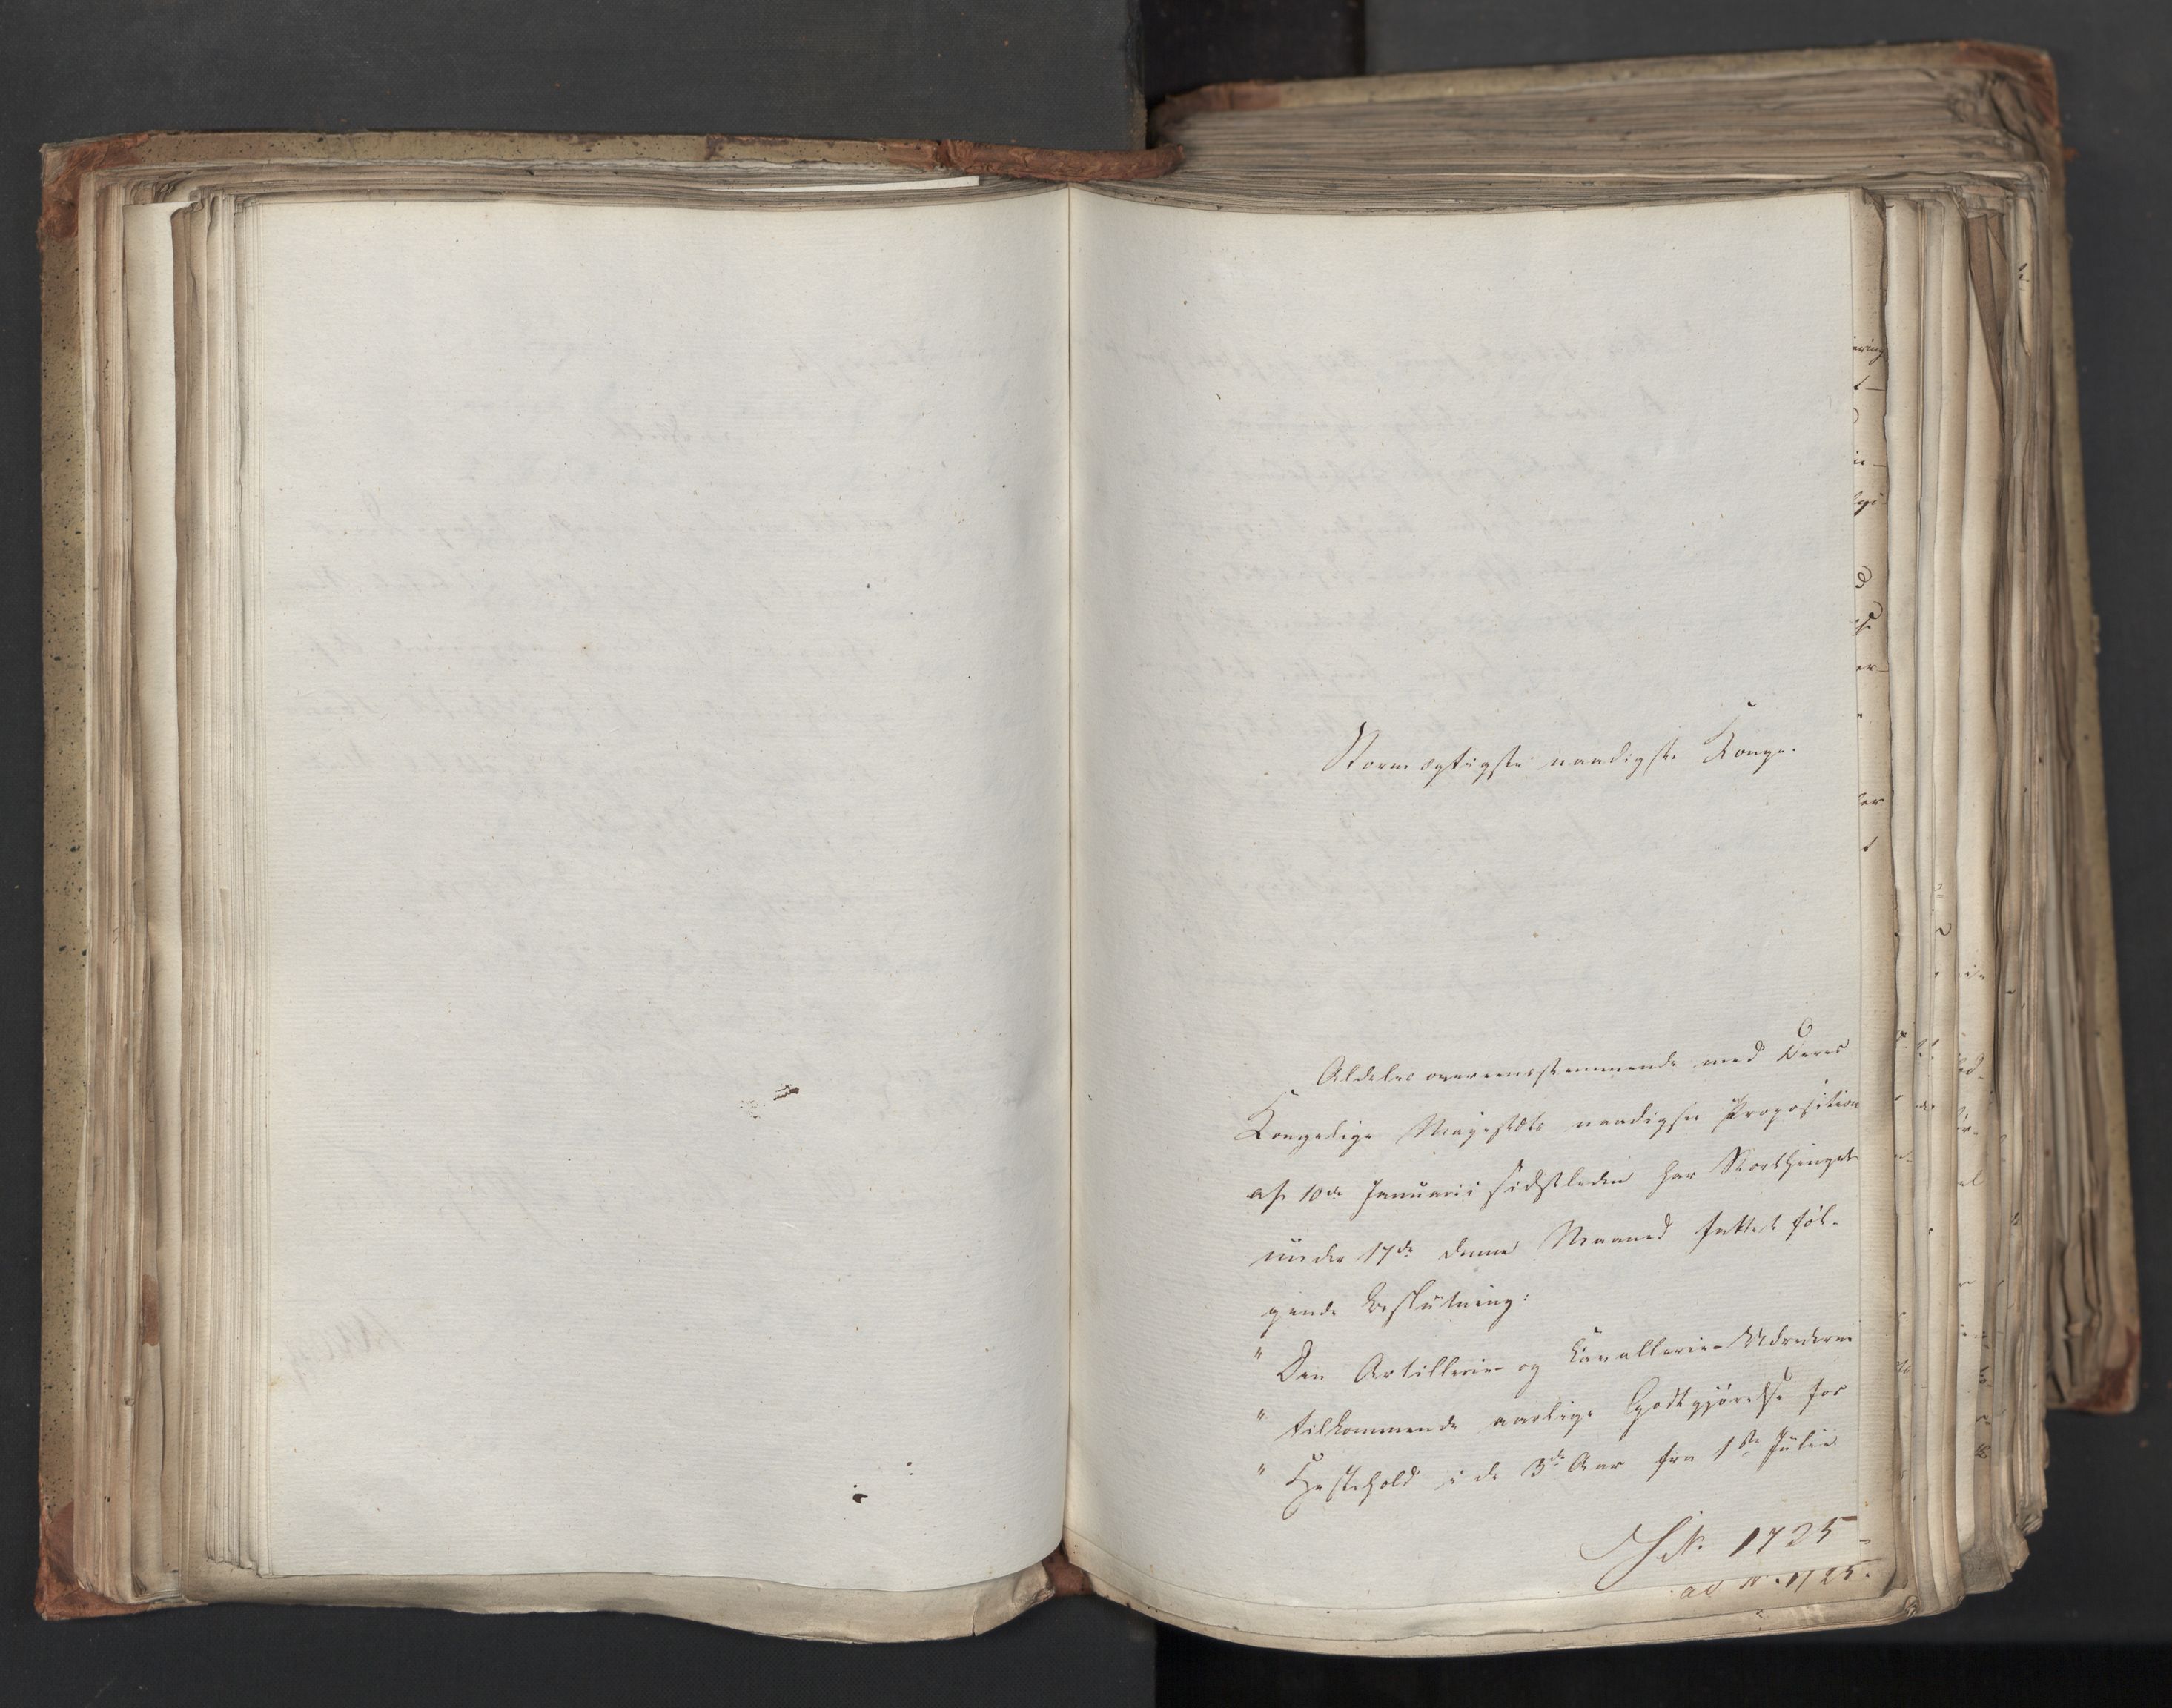 Stormægtigste naadigste Konge.
Aldeles overeensstemmende med Deres
Kongelige Majestæts naadigste Proposition
af 10de Januarii sidstleden har Storthinget
under 17de denne Maaned fattet føl-
gende Beslutning:
" Den Artillerie- og Cavallerie-Udrederne
" tilkommende aarlige Godtgjørelse for
" Hestehold i de 3de Aar fra 1ste Julii
No. 1725
ad No. 1725.